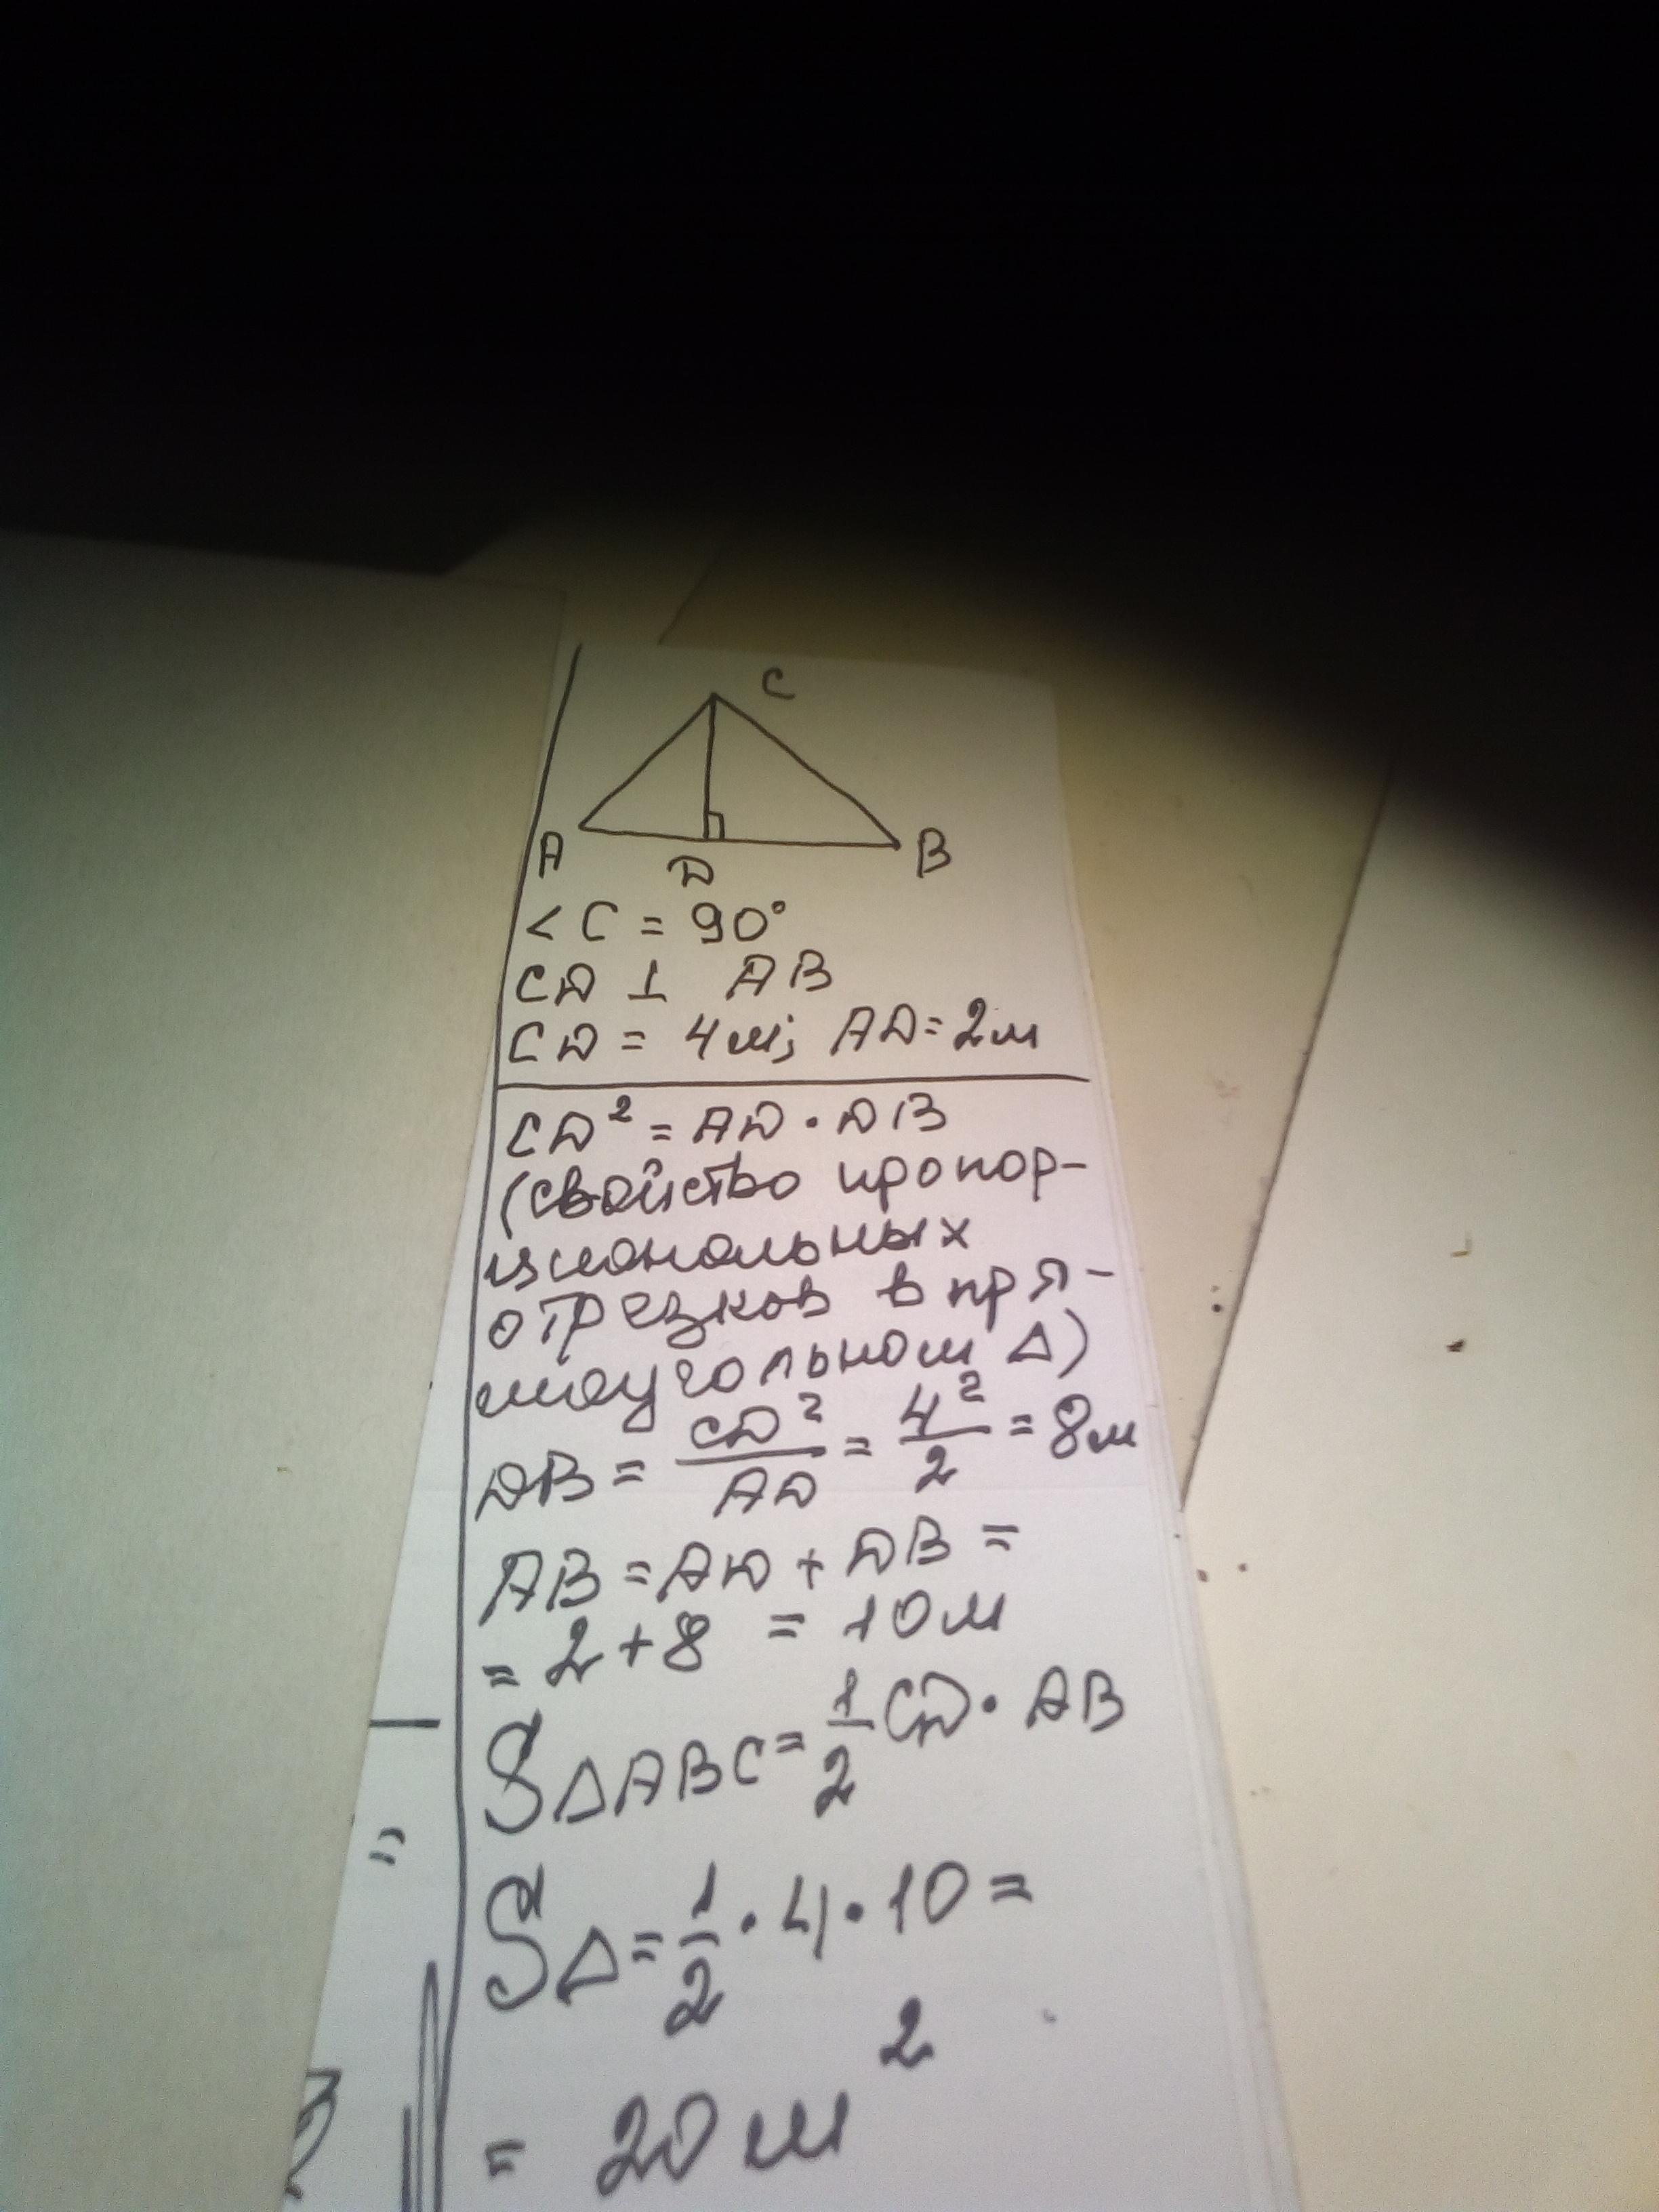 C
A D B
< C = 90°
CD ⊥ AB
CD = 4м; AD = 2м
CD² = AD · DB
(свойство пропор-
циональных
отрезков в пря-
моугольном Δ)
DB = CD²/AD = 4²/2 = 8м
AB = AD + DB =
= 2 + 8 = 10м
SΔABC = 1/2 CD · AB
SΔ = 1/2 · 4 · 10 =
= 20м²